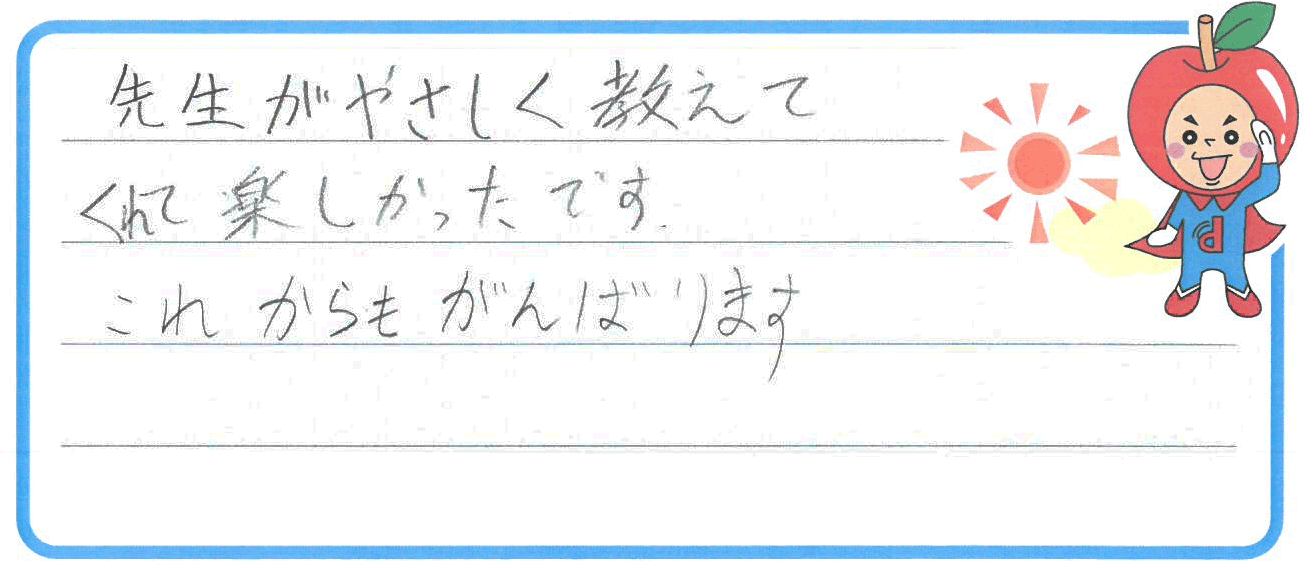 先生がやさしく教えて
くれて楽しかったです.
これからもがんばります